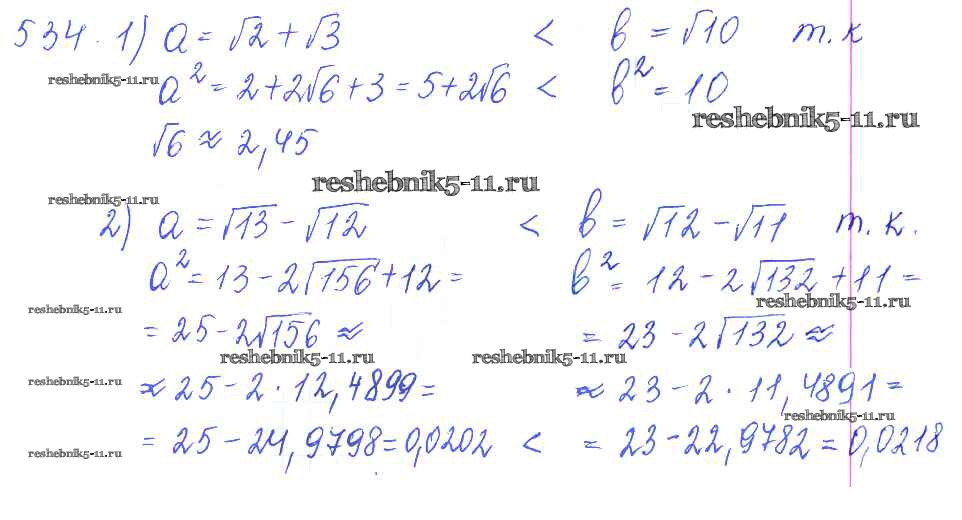 534. 1) a = √2 + √3 < b = √10 т.к
reshebnik5-11.ru
a² = 2 + 2√6 + 3 = 5 + 2√6 < b² = 10
reshebnik5-11.ru
√6 ≈ 2,45
reshebnik5-11.ru
reshebnik5-11.ru
2) a = √13 - √12 < b = √12 - √11 т.к.
a² = 13 - 2√156 + 12 = b² = 12 - 2√132 + 11 =
reshebnik5-11.ru
reshebnik5-11.ru
= 25 - 2√156 ≈ = 23 - 2√132 ≈
reshebnik5-11.ru reshebnik5-11.ru
reshebnik5-11.ru
≈ 25 - 2 · 12,4899 = ≈ 23 - 2 · 11,4891 =
reshebnik5-11.ru
= 25 - 24,9798 = 0,0202 < = 23 - 22,9782 = 0,0218
reshebnik5-11.ru